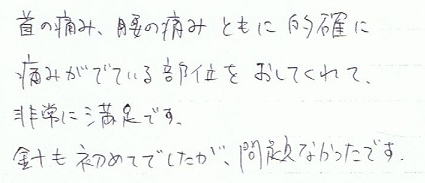 首の痛み、腰の痛み ともに 的確に
痛みがでている部位を おしてくれて、
非常に満足です。
針も 初めてでしたが、問題なかったです。